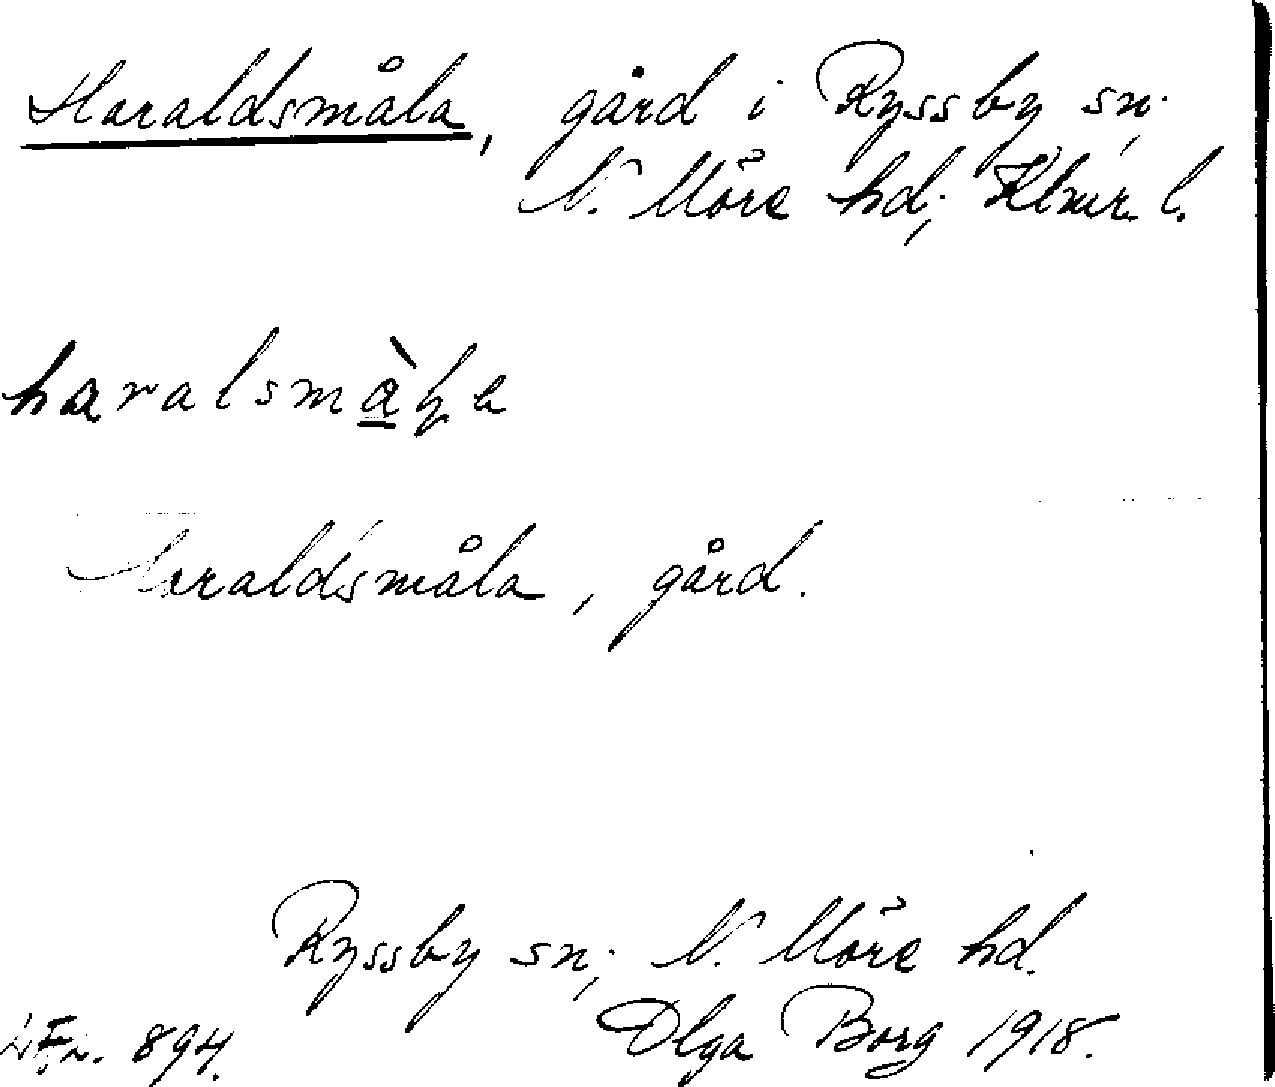 Haraldsmåla, gård i Ryssby sn.,
N. Möre hd., Klmr. l.
haralsmàḷa
Haraldsmåla, gård.
Ryssby sn., N. Möre hd.
894. Olga Borg 1918.